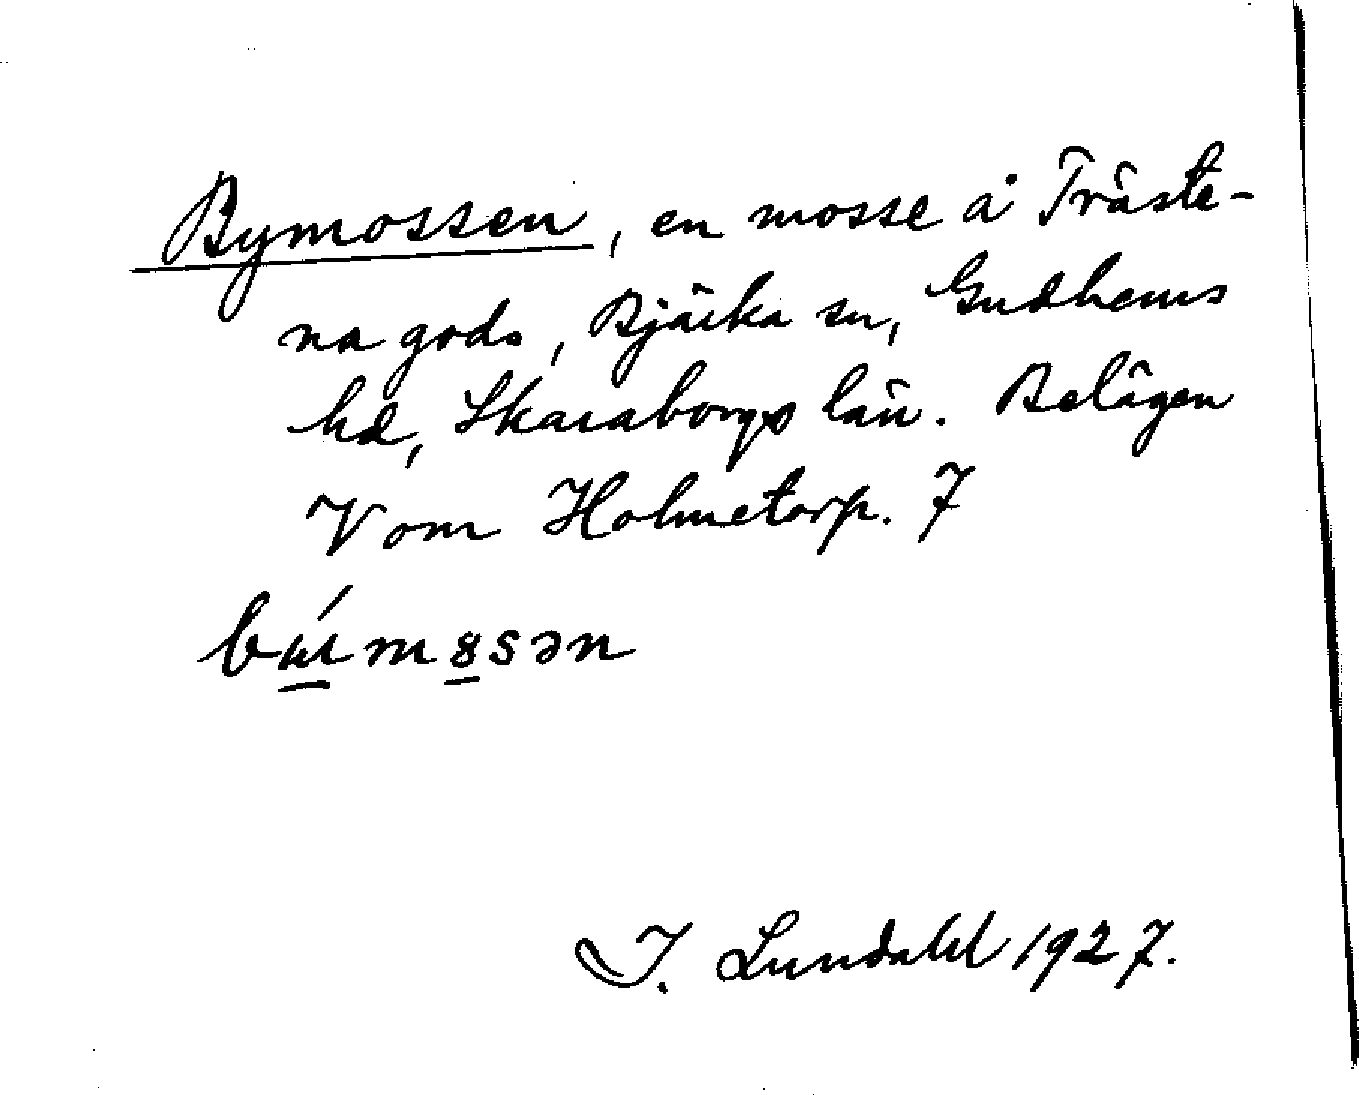 Bymossen, en mosse å Träste-
na gods, Bjärka sn, Gudhems
hd, Skaraborgs län. Belägen
V om Holmetorp. 7
I. Lundahl 1927.